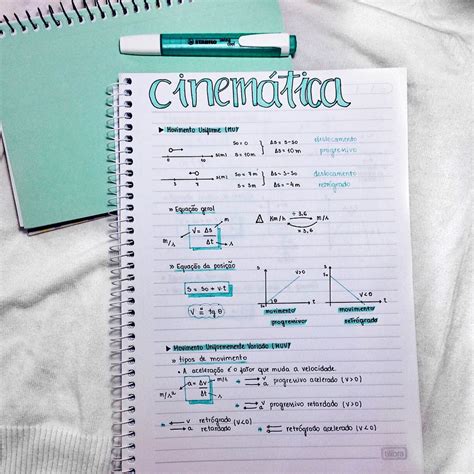 STABILO
cinemática
» Movimento Uniforme (MU)
S0 = 0
S = 10 m
ΔS = S - S0
ΔS = 10 m
deslocamento
progressivo
0 10 S(m)
S0 = 7 m
S = 3 m
ΔS = S - S0
ΔS = -4 m
deslocamento
retrógrado
3 7 S(m)
» Equação geral
m
V = ΔS
Δt
m/s
s
Δ Km/h ÷ 3,6 m/s
× 3,6
» Equação da posição
S = S0 + v·t
V = tg θ
S
S0
V>0
t
movimento
progressivo
S
S0
V<0
t
movimento
retrógrado
» Movimento Uniformemente Variado (MUV)
» tipos de movimento
• A aceleração é o fator que muda a velocidade.
m/s
a = ΔV
Δt
m/s²
s
* v
a progressivo acelerado (v>0)
* v
a progressivo retardado (v>0)
* v retrógrado (v<0)
a retardado
* v
a retrógrado acelerado (v<0)
tilibra